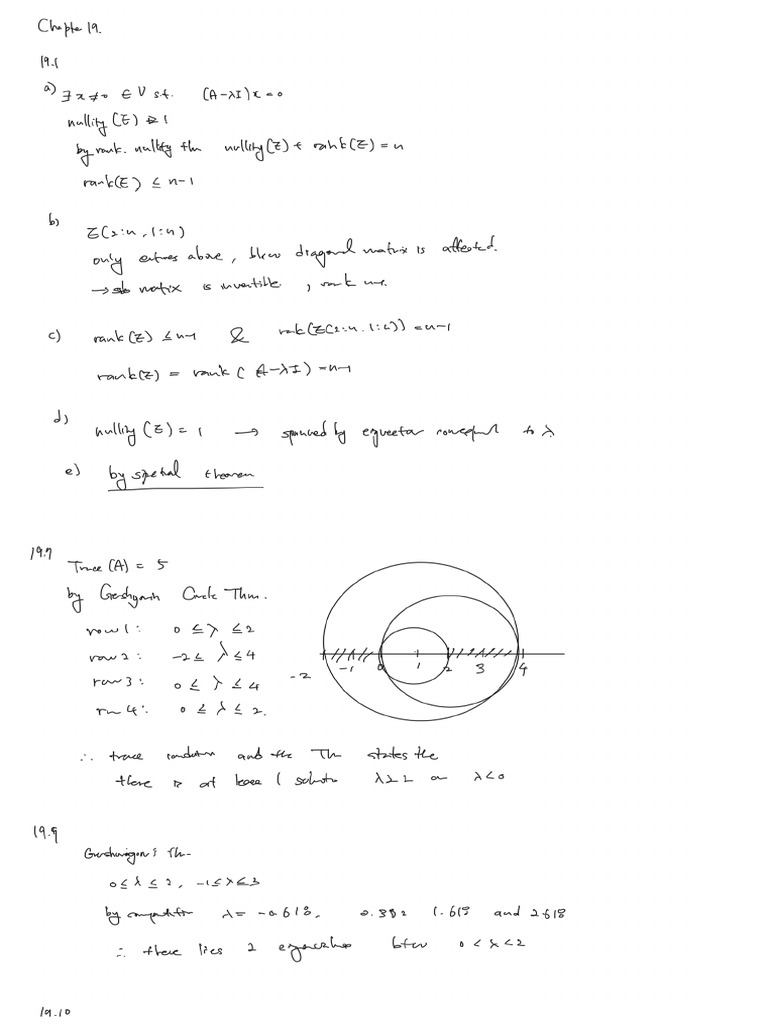 Chapte 19.
19.1
a) ∃ x≠0 ∈ V s.t. (A-λI)x=0
nullity(Z) ≥ 1
by rank. nullity thm nullity(Z) + rank(Z) = n
rank(Z) ≤ n-1
b)
Z(2:n, 1:n)
only entries above, blew diagonal matrix is affected.
→ matrix is invertible, rank n-1.
c) rank(Z) ≤ n-1 & rank(Z(2:n, 1:n)) = n-1
rank(Z) = rank(A-λI) = n-1
d)
nullity(Z) = 1 → spanned by to λ
e) by spetral theorem
19.7
Trace(A) = 5
by Gershgorin Circle Thm.
row 1: 0 ≤ λ ≤ 2
row 2: -2 ≤ λ ≤ 4
row 3: 0 ≤ λ ≤ 4
row 4: 0 ≤ λ ≤ 2.
-2 -1 0 1 2 3 4
∴ trace condition and the Th states the
there is at least 1 λ≥2 or λ<0
19.9
Th.
0 ≤ λ ≤ 2, -1 ≤ λ ≤ 3
by λ = -0.618, 0.382 1.618 and 2.618
∴ there lies 2 btw 0 < λ < 2
19.10